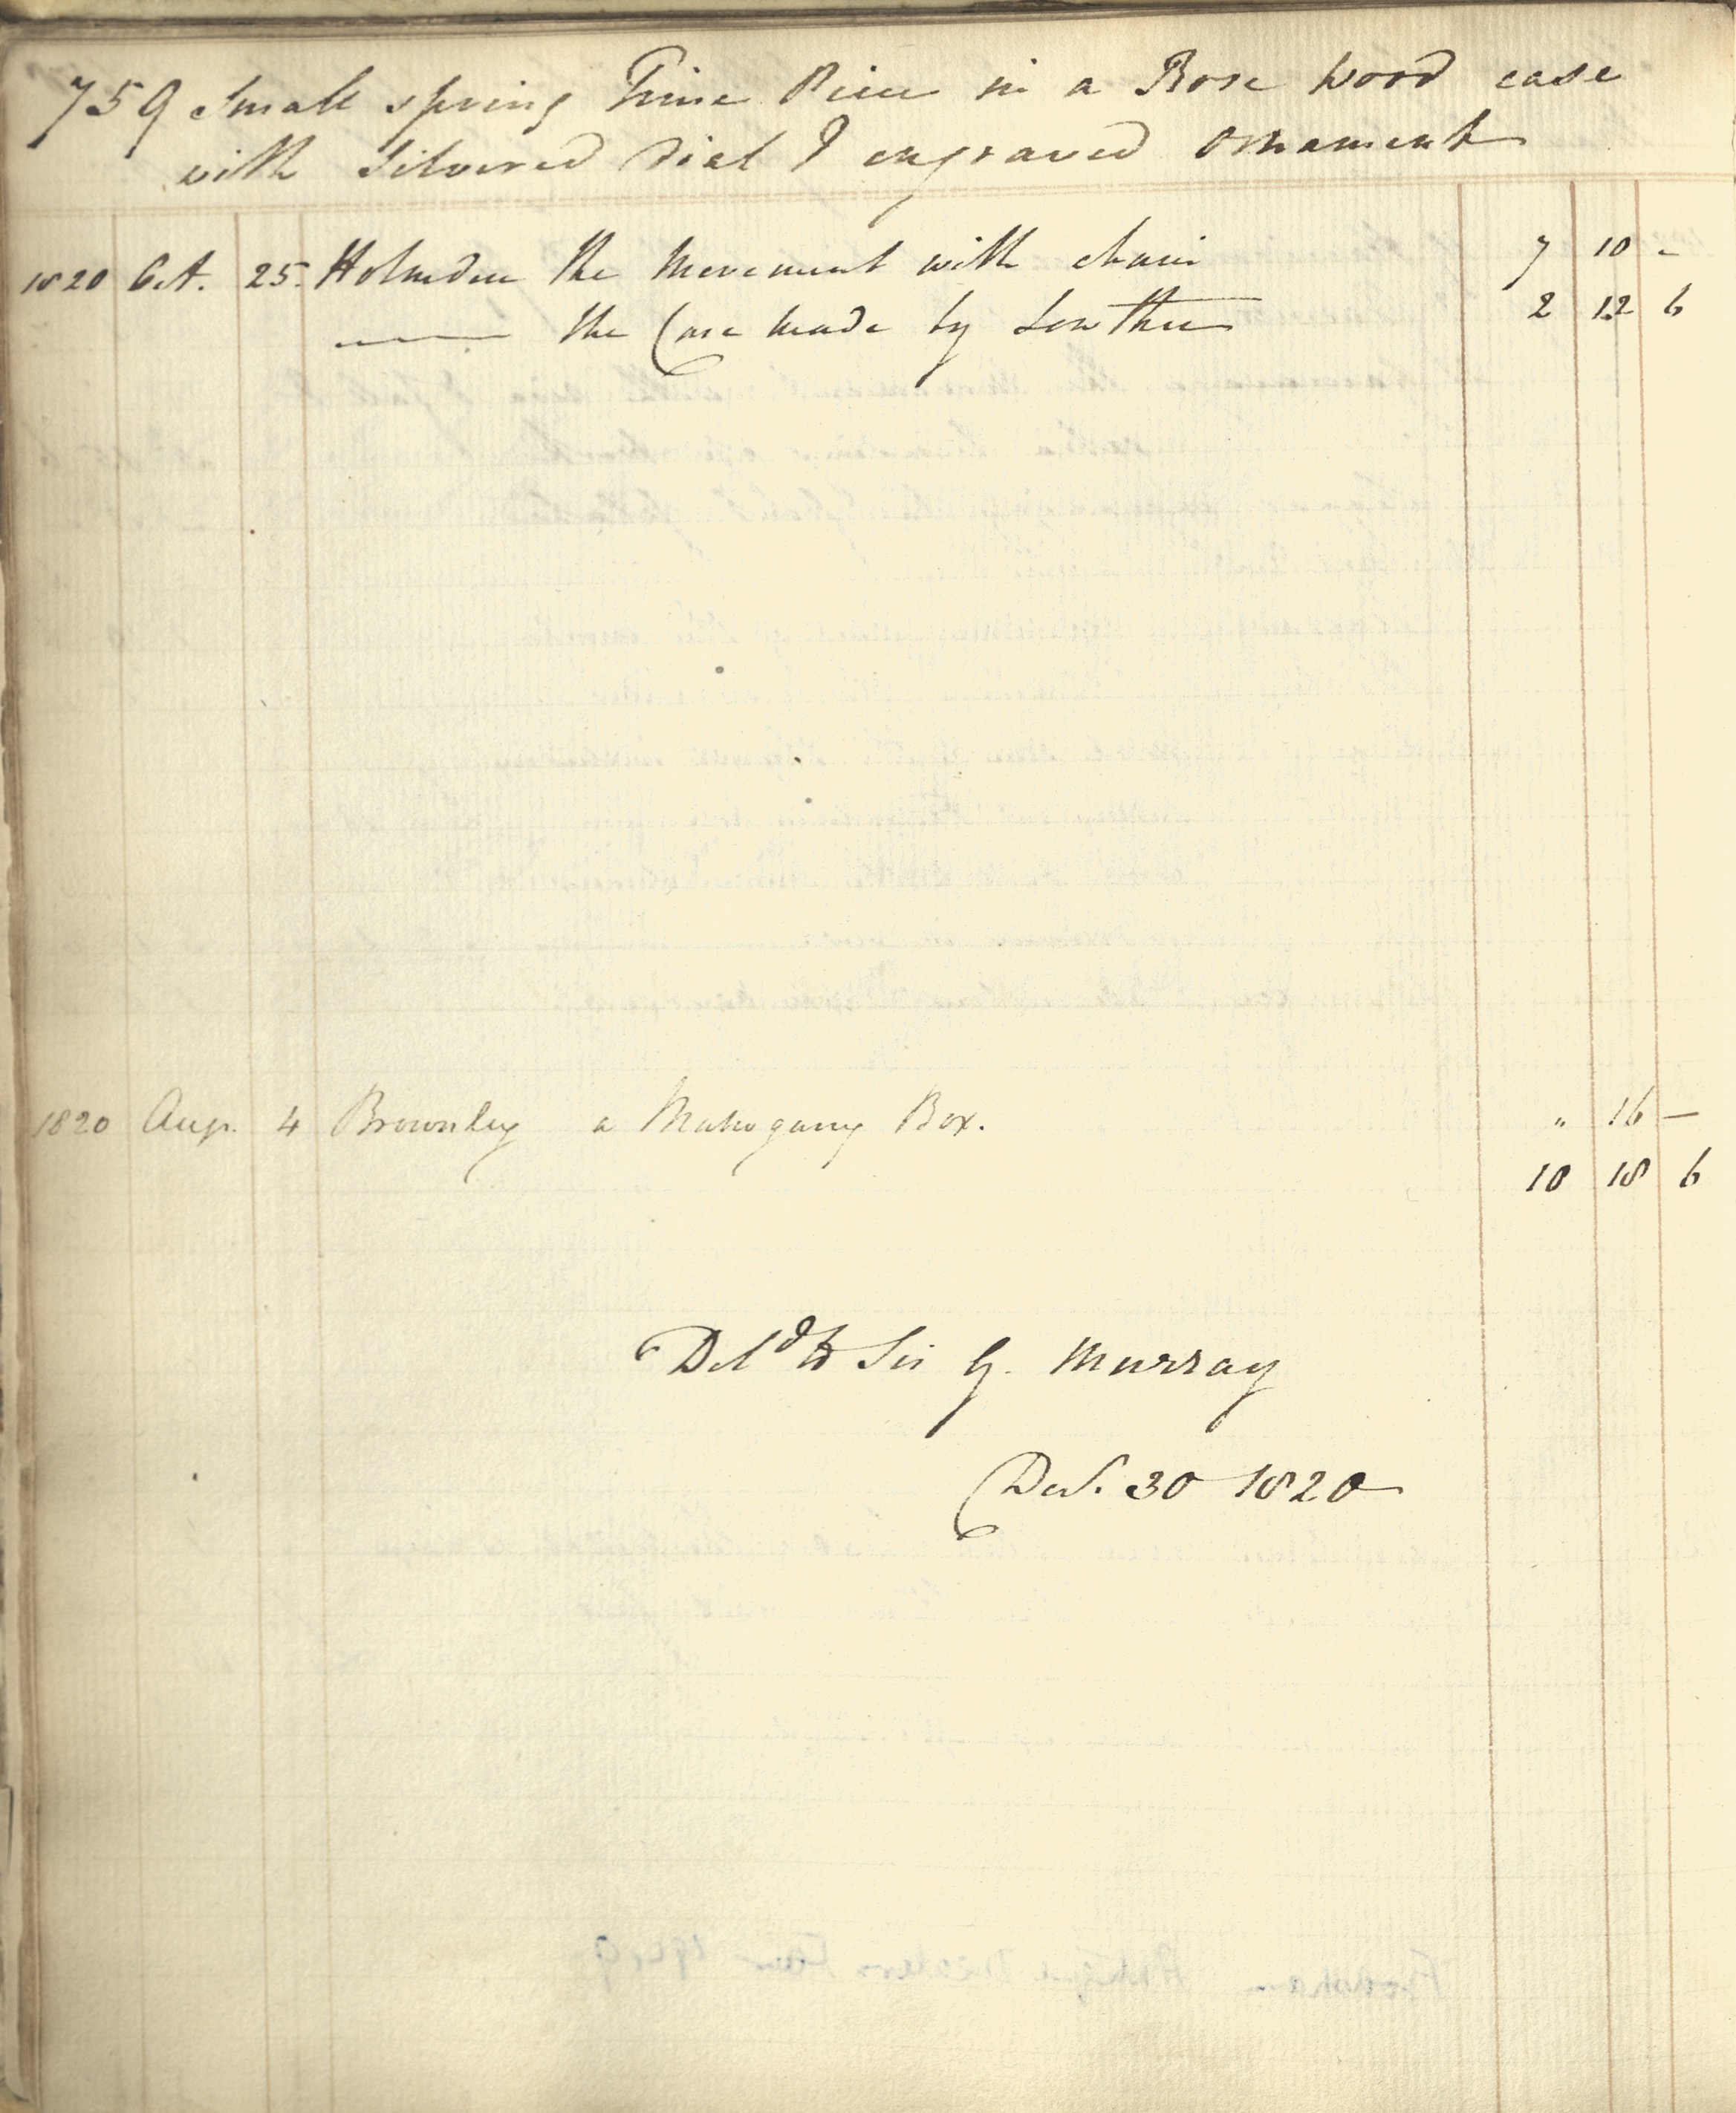 759 Small spring Time Piece in a Rose wood case
with Silvered Dial & engraved Ornament
1820 Oct. 25. Holmden the Movement with chain 7 10 -
—— the Case made by Lowther 2 12 6
1820 Aug. 4 Brownley a Mahogany Box. " 16 —
10 18 6
Deld to Sir G. Murray
Dec. 30 1820